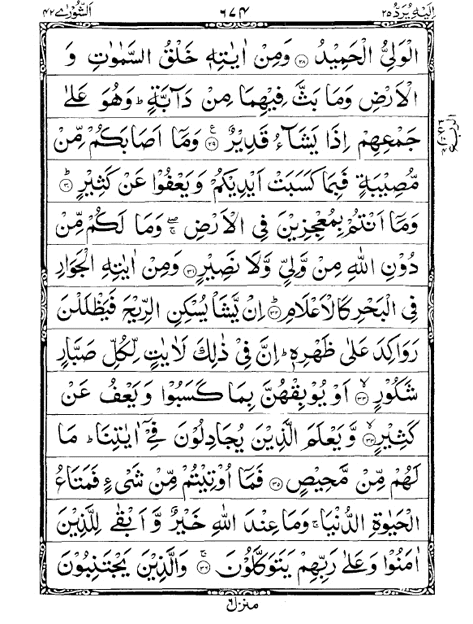 اِلَيْهِ يُرَدُّ ٢٥ ٦٧٤ اَلشُّوْرٰى ٤٢
الْوَلِيُّ الْحَمِيْدُ ﴿۲۸﴾ وَمِنْ اٰيٰتِهٖ خَلْقُ السَّمٰوٰتِ وَ
الْاَرْضِ وَمَا بَثَّ فِيْهِمَا مِنْ دَآبَّةٍ ؕ وَهُوَ عَلٰى
جَمْعِهِمْ اِذَا يَشَآءُ قَدِيْرٌ ﴿۲۹﴾ وَمَاۤ اَصَابَكُمْ مِّنْ
مُّصِيْبَةٍ فَبِمَا كَسَبَتْ اَيْدِيْكُمْ وَيَعْفُوْا عَنْ كَثِيْرٍ ﴿۳۰﴾
وَمَاۤ اَنْتُمْ بِمُعْجِزِيْنَ فِى الْاَرْضِ ۖۚ وَمَا لَكُمْ مِّنْ
دُوْنِ اللّٰهِ مِنْ وَّلِيٍّ وَّلَا نَصِيْرٍ ﴿۳۱﴾ وَمِنْ اٰيٰتِهِ الْجَوَارِ
فِى الْبَحْرِ كَالْاَعْلَامِ ﴿۳۲﴾ اِنْ يَّشَاْ يُسْكِنِ الرِّيْحَ فَيَظْلَلْنَ
رَوَاكِدَ عَلٰى ظَهْرِهٖ ؕ اِنَّ فِىْ ذٰلِكَ لَاٰيٰتٍ لِّكُلِّ صَبَّارٍ
شَكُوْرٍ ﴿۳۳﴾ اَوْ يُوْبِقْهُنَّ بِمَا كَسَبُوْا وَيَعْفُ عَنْ
كَثِيْرٍ ﴿۳۴﴾ وَّيَعْلَمَ الَّذِيْنَ يُجَادِلُوْنَ فِىْۤ اٰيٰتِنَا ؕ مَا
لَهُمْ مِّنْ مَّحِيْصٍ ﴿۳۵﴾ فَمَاۤ اُوْتِيْتُمْ مِّنْ شَىْءٍ فَمَتَاعُ
الْحَيٰوةِ الدُّنْيَا ۚ وَمَا عِنْدَ اللّٰهِ خَيْرٌ وَّاَبْقٰى لِلَّذِيْنَ
اٰمَنُوْا وَعَلٰى رَبِّهِمْ يَتَوَكَّلُوْنَ ﴿۳۶﴾ وَالَّذِيْنَ يَجْتَنِبُوْنَ
منزل ٦